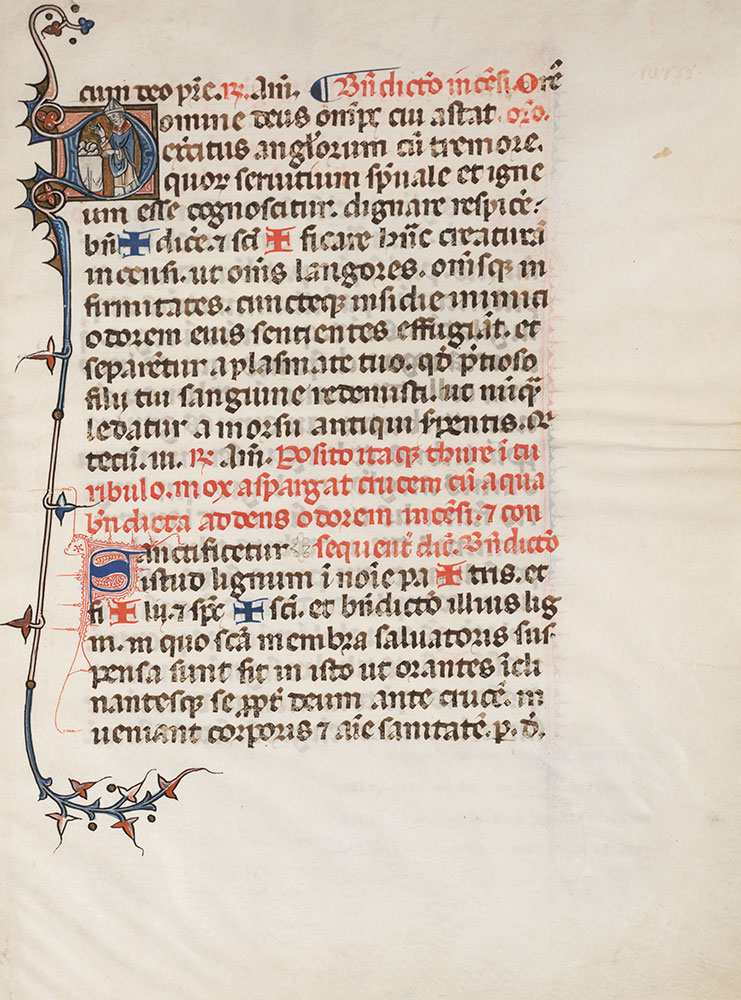 cum deo pr̃e. ℟. Am̃. ¶ Bñdictõ incẽsi. Orẽ
Domine deus om̃ps cui astat. orõ.
exercitus anglorum cũ tremore.
quorꝝ seruitium sp̃uale et igne
um esse cognoscitur. dignare respicẽ.
bñ ✠ dicẽ. ⁊ sc̃i ✠ ficare hãc creaturã
incensi. ut om̃s langores. om̃sqꝫ in
firmitates. cuncteqꝫ insidie inimici
odorem eius sentientes effugiãt. et
separẽtur a plasmate tuo. qđ p̃tioso
filij tui sanguine redemisti. ut nũqꝫ̃
ledatur a morsu antiqui s̃pentis. Et
tecũ. in. ℟. Am̃. Posito itaqꝫ thure ĩ tu
ribulo. mox aspargat crucem cũ aqua
bñdicta addens odorem incẽsi. ⁊ con
Sanctificetur sequent̃ dic̃. Bñdictõ
istud lignum ĩ noĩe pa ✠ tris. et
fi ✠ lij. ⁊ sp̃c ✠ sc̃i. et bñdictõ illius lig
ni. in quo sc̃a membra saluatoris sus
pensa sunt sit in isto ut orantes ĩcli
nantesqꝫ se ꝓpt̃ deum ante crucẽ. in
ueniant corporis ⁊ aĩe sanitatẽ. p. d̃.